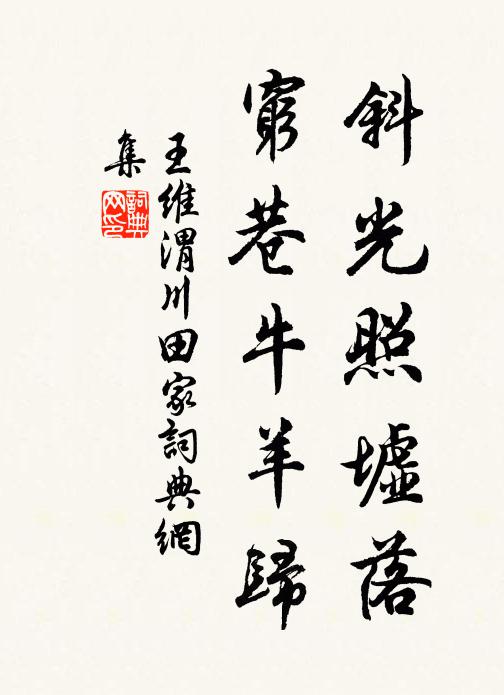 斜光照墟落
窮巷牛羊歸
王維渭川田家詞典網
集
詞典
网印